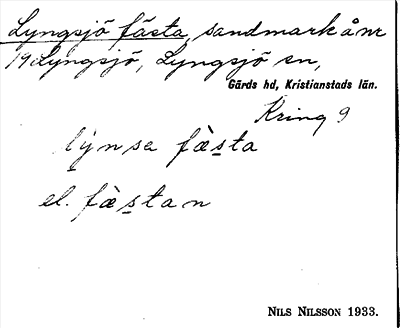 Lyngsjö fästa, sandmark å nr
19 Lyngsjö, Lyngsjö sn,
Gärds hd, Kristianstads län.
Kring 9
lýnsa fæ̀sta
el. fæ̀stan
NILS NILSSON 1933.